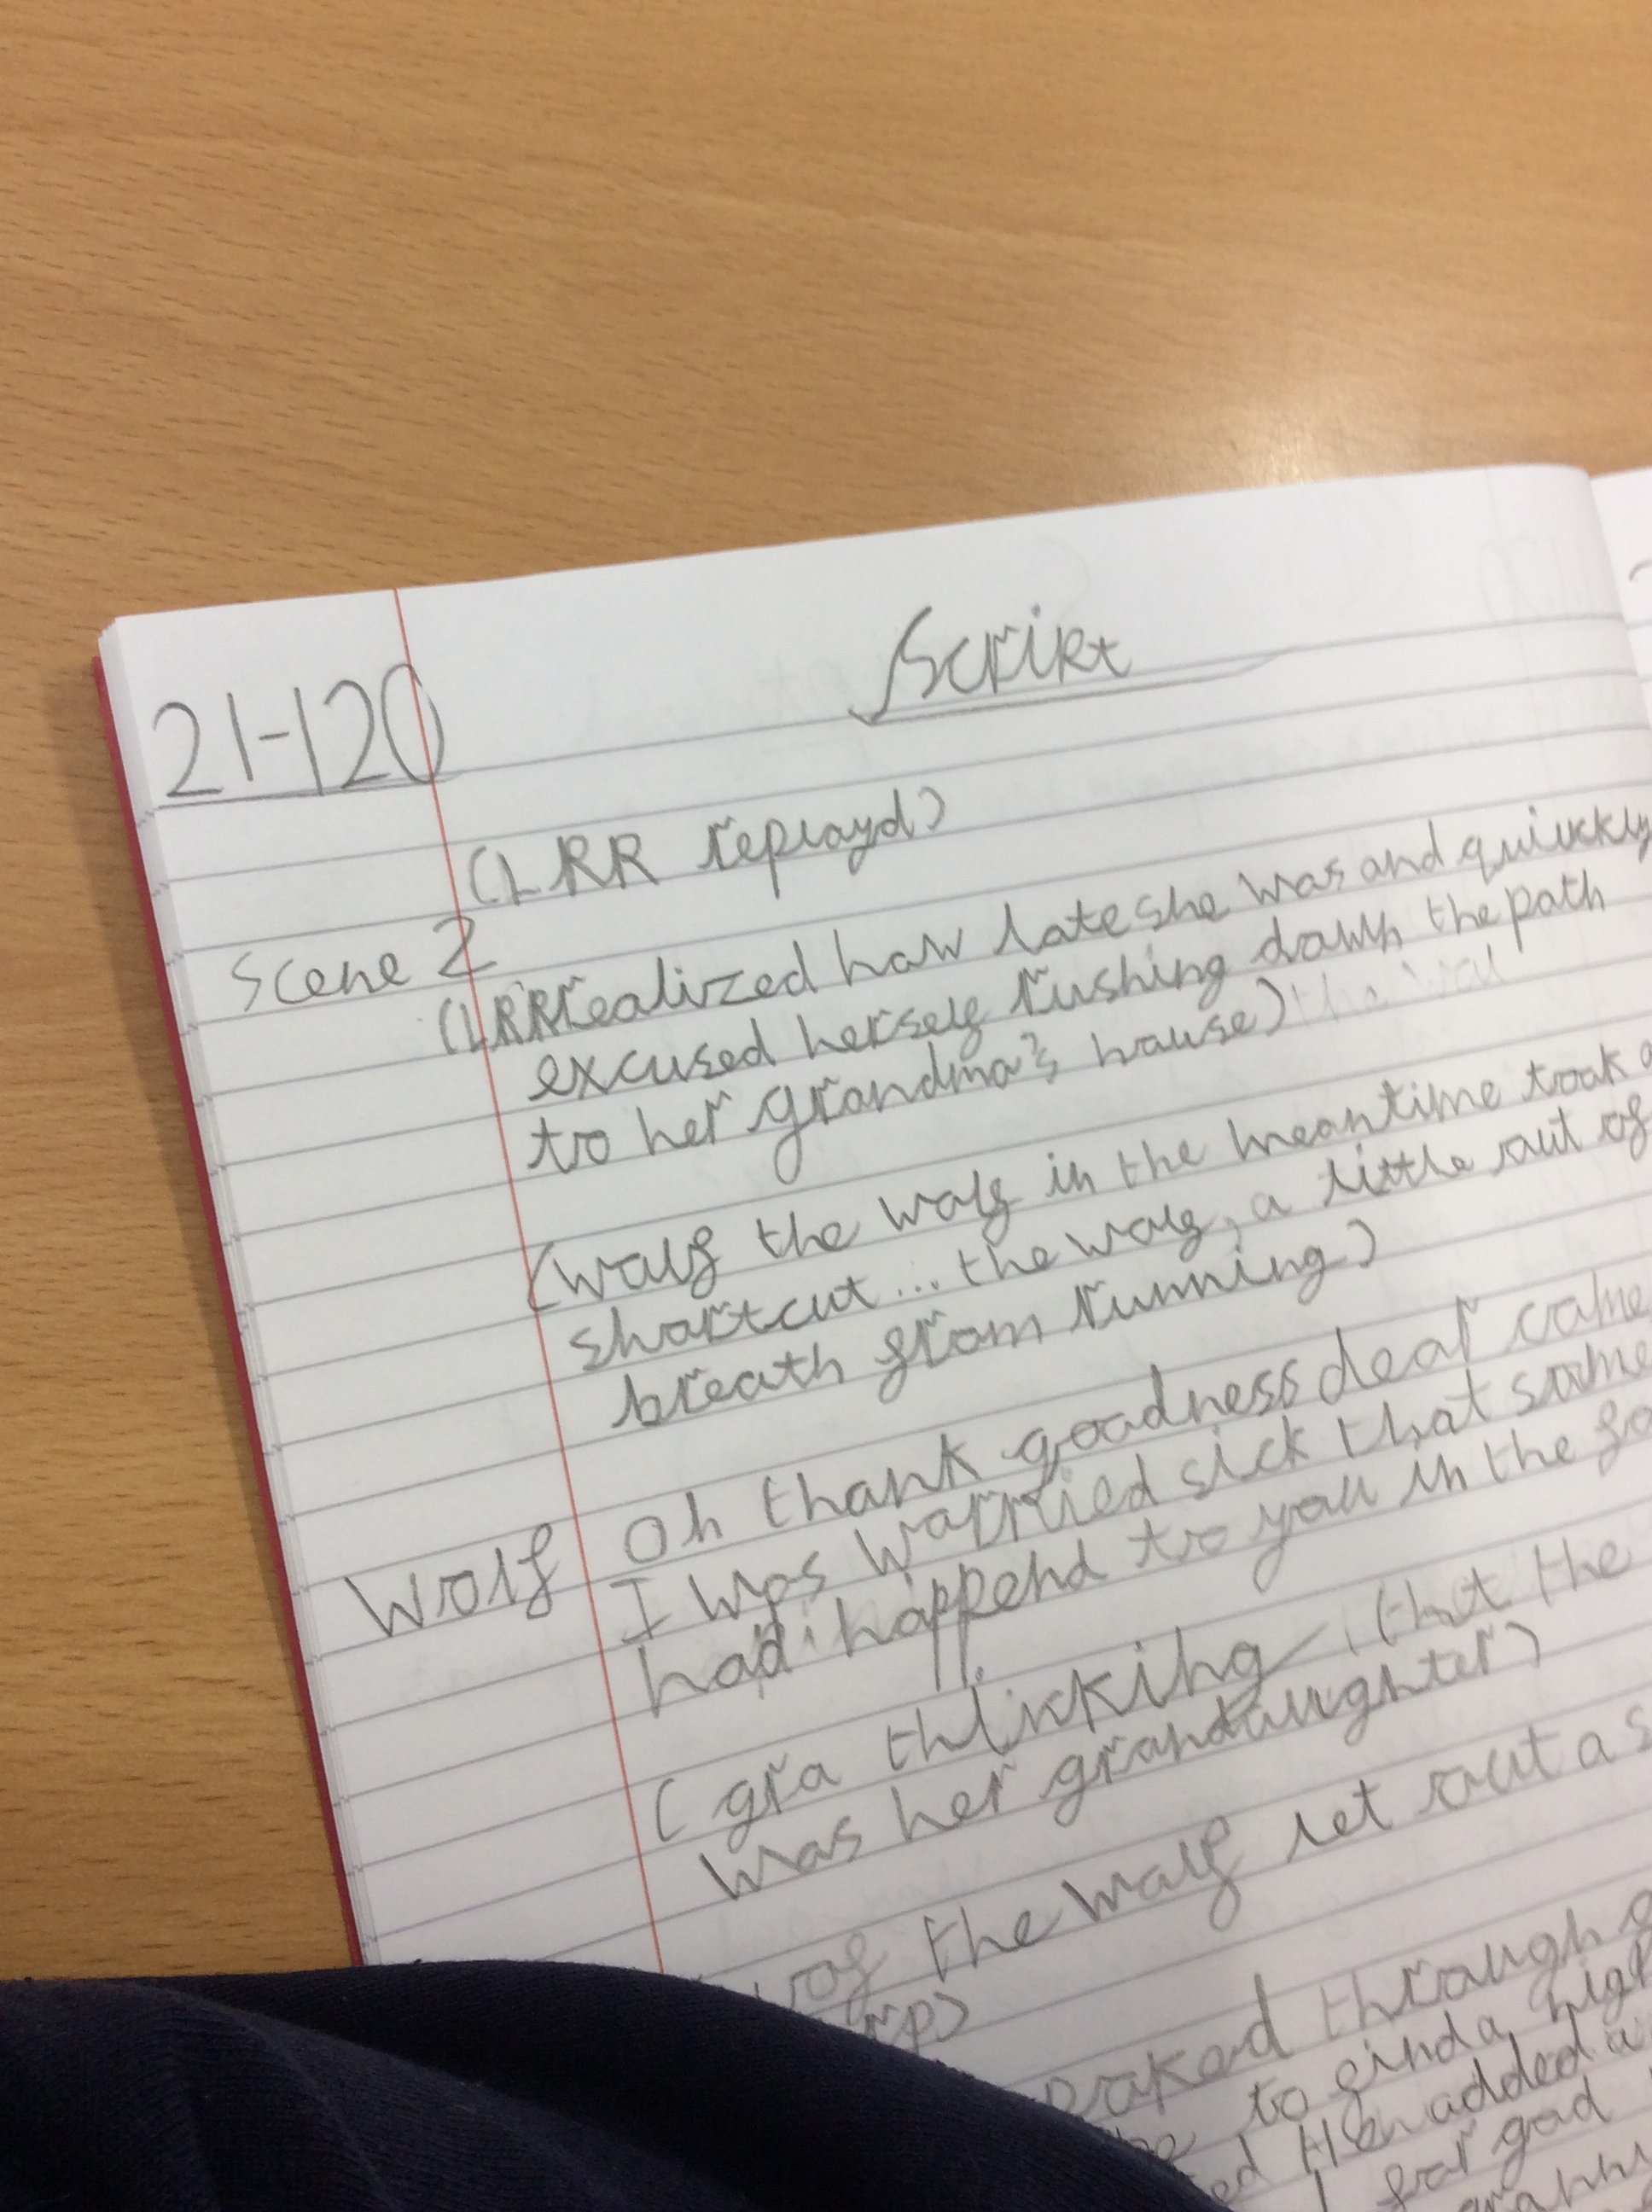 Script
21-120
(LRR replayd)
Scene 2
(LRR realized how late she was and quickly
excused herself rushing down the path
to her grandma's house) the wol
(wolf the wolf in the meantime took a
shortcut... the wolf, a little out of
breath from running)
Wolf Oh thank goodness dear
I was worried sick that some
had happend to you in the fo
(gra thinking that the
was her grandaughter)
the wolf let out a s
rp)
through
to find a
ed then added a
for god